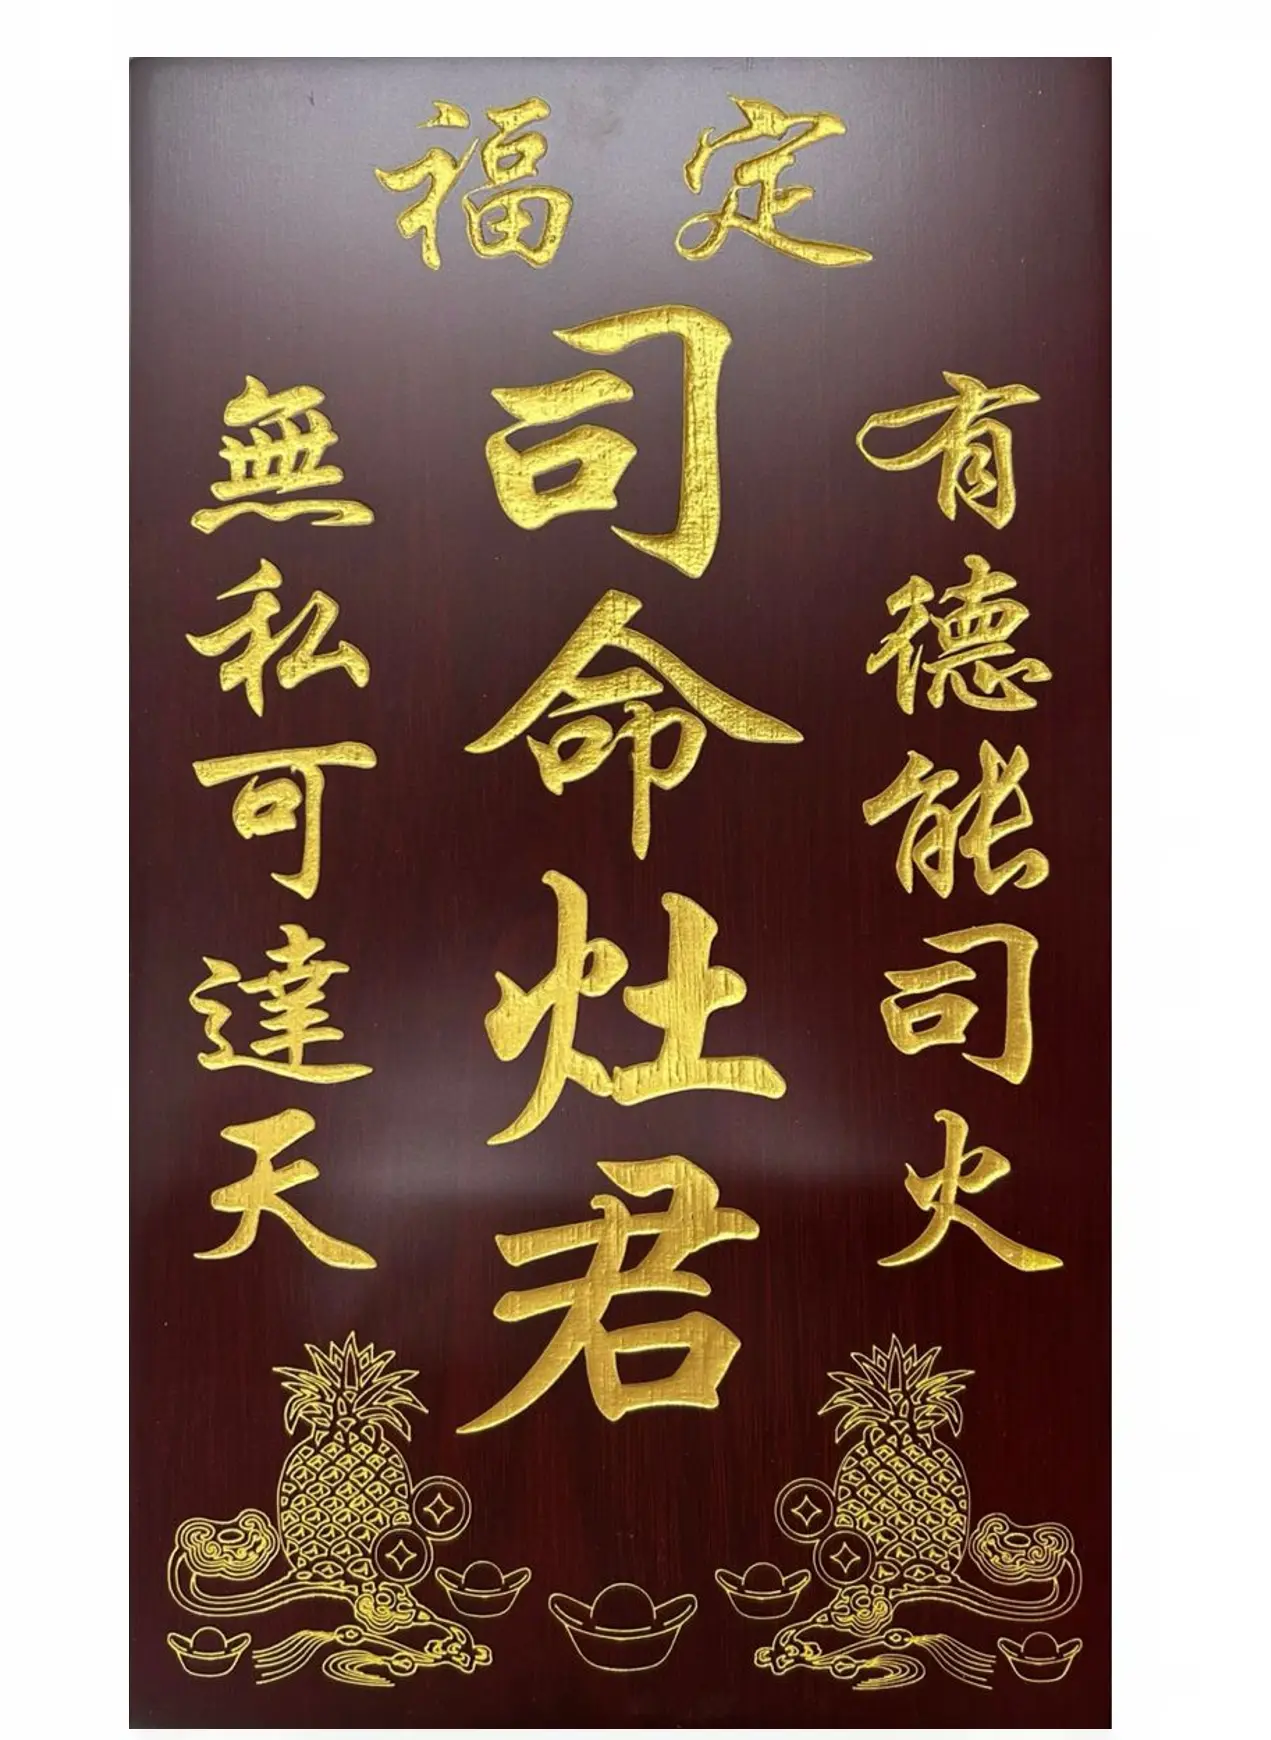 定福
有德能司火
司命灶君
無私可達天